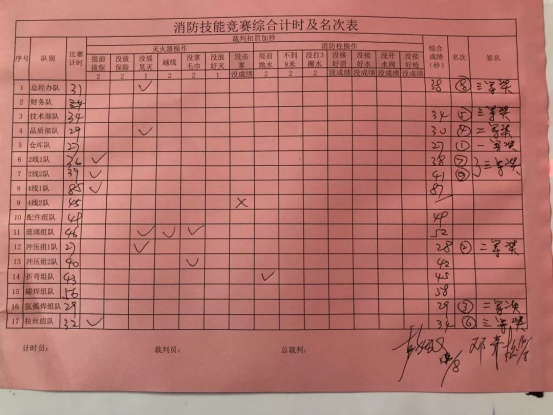 消防技能竞赛综合计时及名次表
序号 队别 比赛计时 裁判扣罚加秒 综合成绩(秒) 名次 签名
灭火器操作 消防栓操作
提前拔保 没拔保险 没摇晃灭 越线 没拿毛巾 没放好灭 提前抛水 不到8米 没打3圈水 没接好消 没接好水 没开水阀 没接好枪
2 2 1 1 2 1 没成绩 2 2 2 没成绩 没成绩 没成绩 没成绩
1 总经办队 37 ✓ 38 ⑧ 三等奖
2 财务队 34
3 技术部队 34 34 ⑤ 三等奖
4 品质部队 29 ✓ 30 ④ 二等奖
5 仓库队 27 27 ① 一等奖
6 2线1队 36 ✓ 38 ⑦ 三等奖
7 2线2队 39 ✓ 41
8 4线1队 85 ✓ 87
9 4线2队 45 ×
10 配件组队 49 49
11 玻璃组队 46 ✓ ✓ ✓ 52
12 冲压组1队 27 ✓ 28 ② 二等奖
13 冲压组2队 40 ✓ 42
14 折弯组队 43 ✓ 45
15 碰焊组队 56 58
16 氩弧焊组队 29 29 ③ 二等奖
17 拉丝组队 32 ✓ 34 ⑥ 三等奖
计时员： 裁判员： 总裁判：